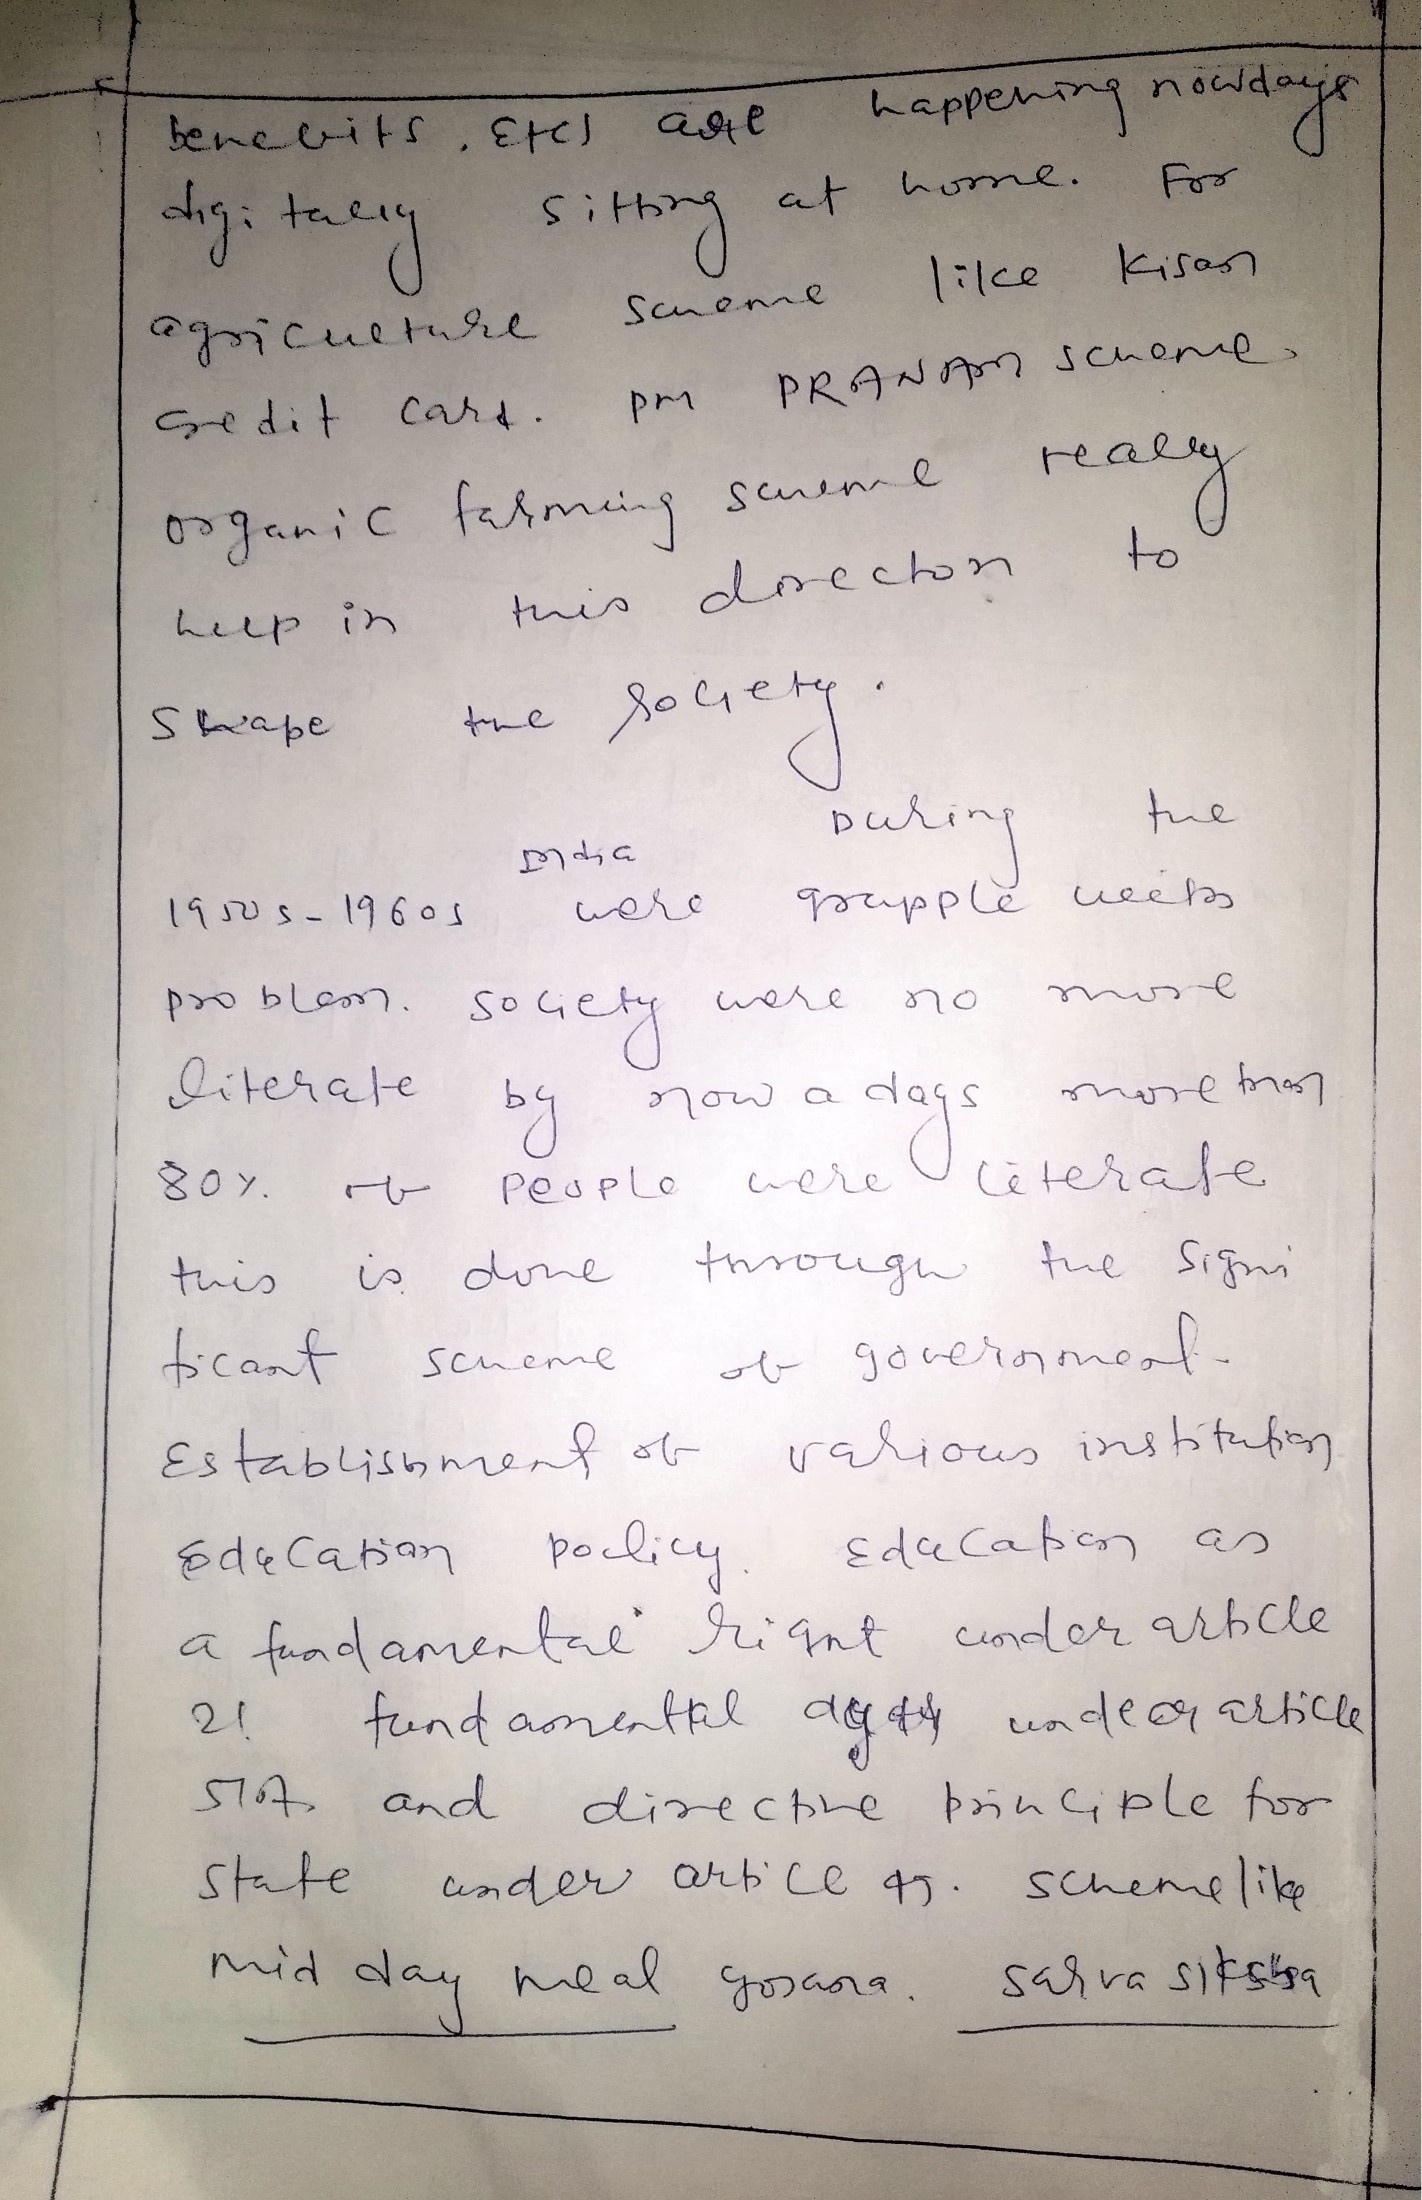 benefits, etc) are happening nowdays
digitally sitting at home. For
agriculture scheme like Kisan
credit card. PM PRANAM scheme,
organic farming scheme really
help in this direction to
shape the society.
During the
1950s-1960s India were grapple with
problem. society were no more
literate by now a days more than
80% of people were literate
this is done through the signi
ficant scheme of government.
Establishment of various institution
Education policy. Education as
a fundamental right under article
21 fundamental duty under article
51A and directive principle for
state under article 45. scheme like
mid day meal yojana. sarva siksha